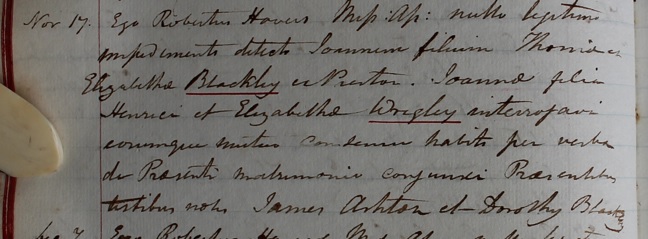 Nov 17. Ego Robertus Hovers Miss: Ap: nullo legitimo
impedimento detecto Joannem filium Thomæ et
Elizabethæ Blackley ex Preston. Joannæ filia
Henrici et Elizabethæ Wrigley interrogavi
eorumque mutuo consensu habito per verba
de Præsenti matrimonio conjunxi Præsentibus
testibus notis James Ashton et Dorothy Blackley
Ego Robertus